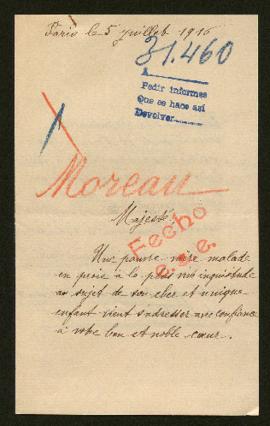 Paris le 5 juillet 1916
31.460
A
Pedir informes
Que se hace así
Devolver
Moreau
Majesté,
Fecho
Une pauvre mère malade
en proie à la plus vive inquiétude
au sujet de son cher et unique
enfant vient s'adresser avec confiance
à votre bon et noble cœur.